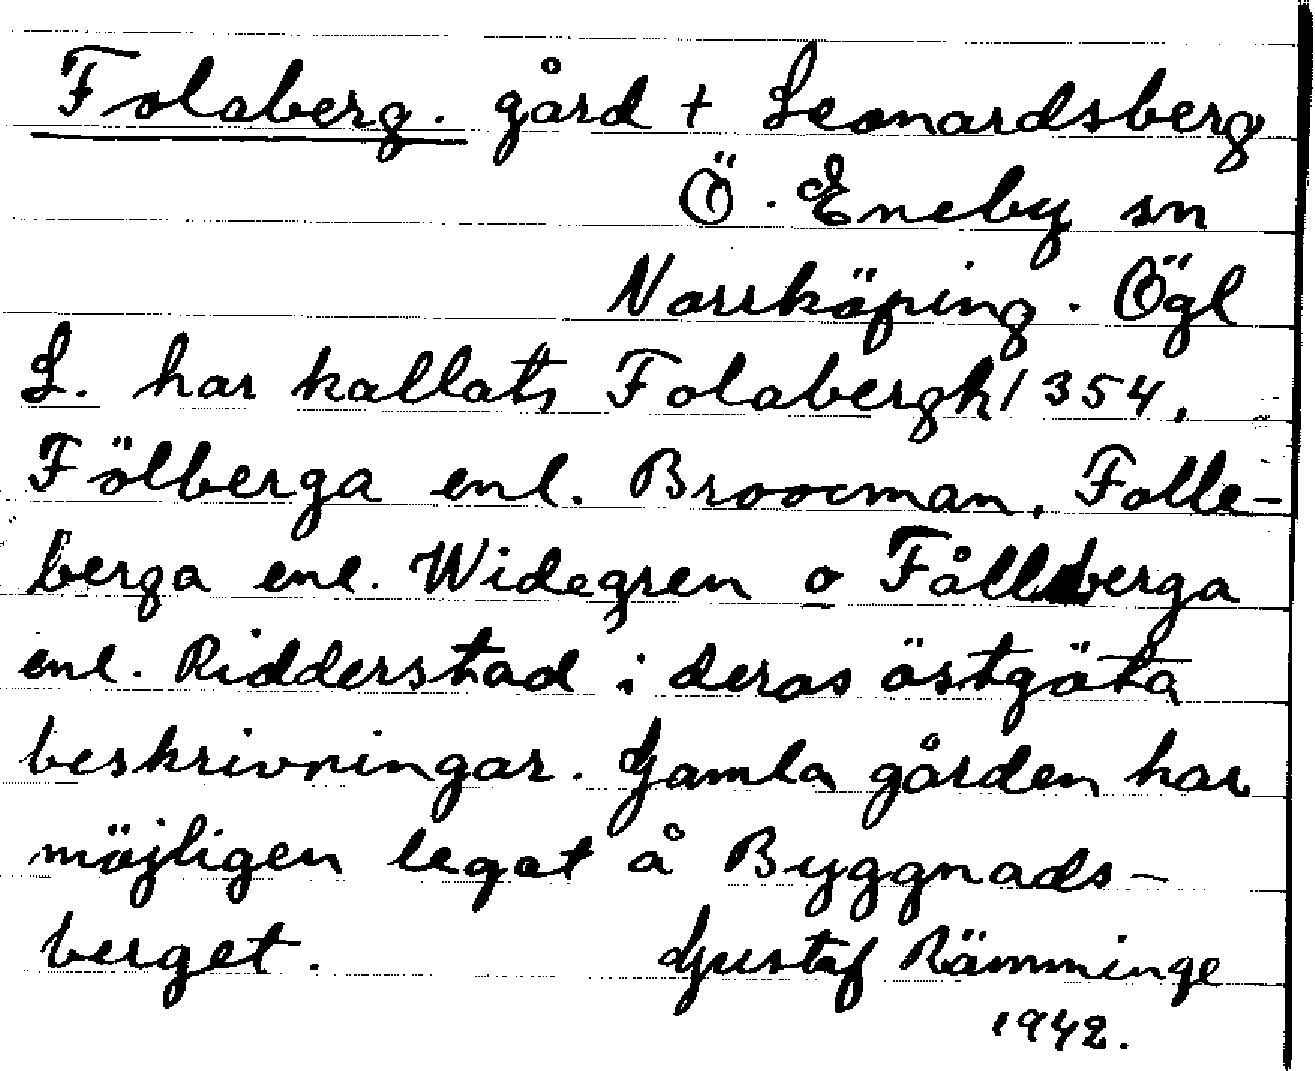 Folaberg. gård + Leonardsberg
Ö. Eneby sn
Norrköping. Ögl
L. har kallats Folabergh 1354,
Fölberga enl. Broocman, Folle-
berga enl. Widegren o Fållberga
enl. Ridderstad i deras östgöta
beskrivningar. Gamla gården har
möjligen legat å Byggnads-
berget. Gustaf Rämminge
1942.